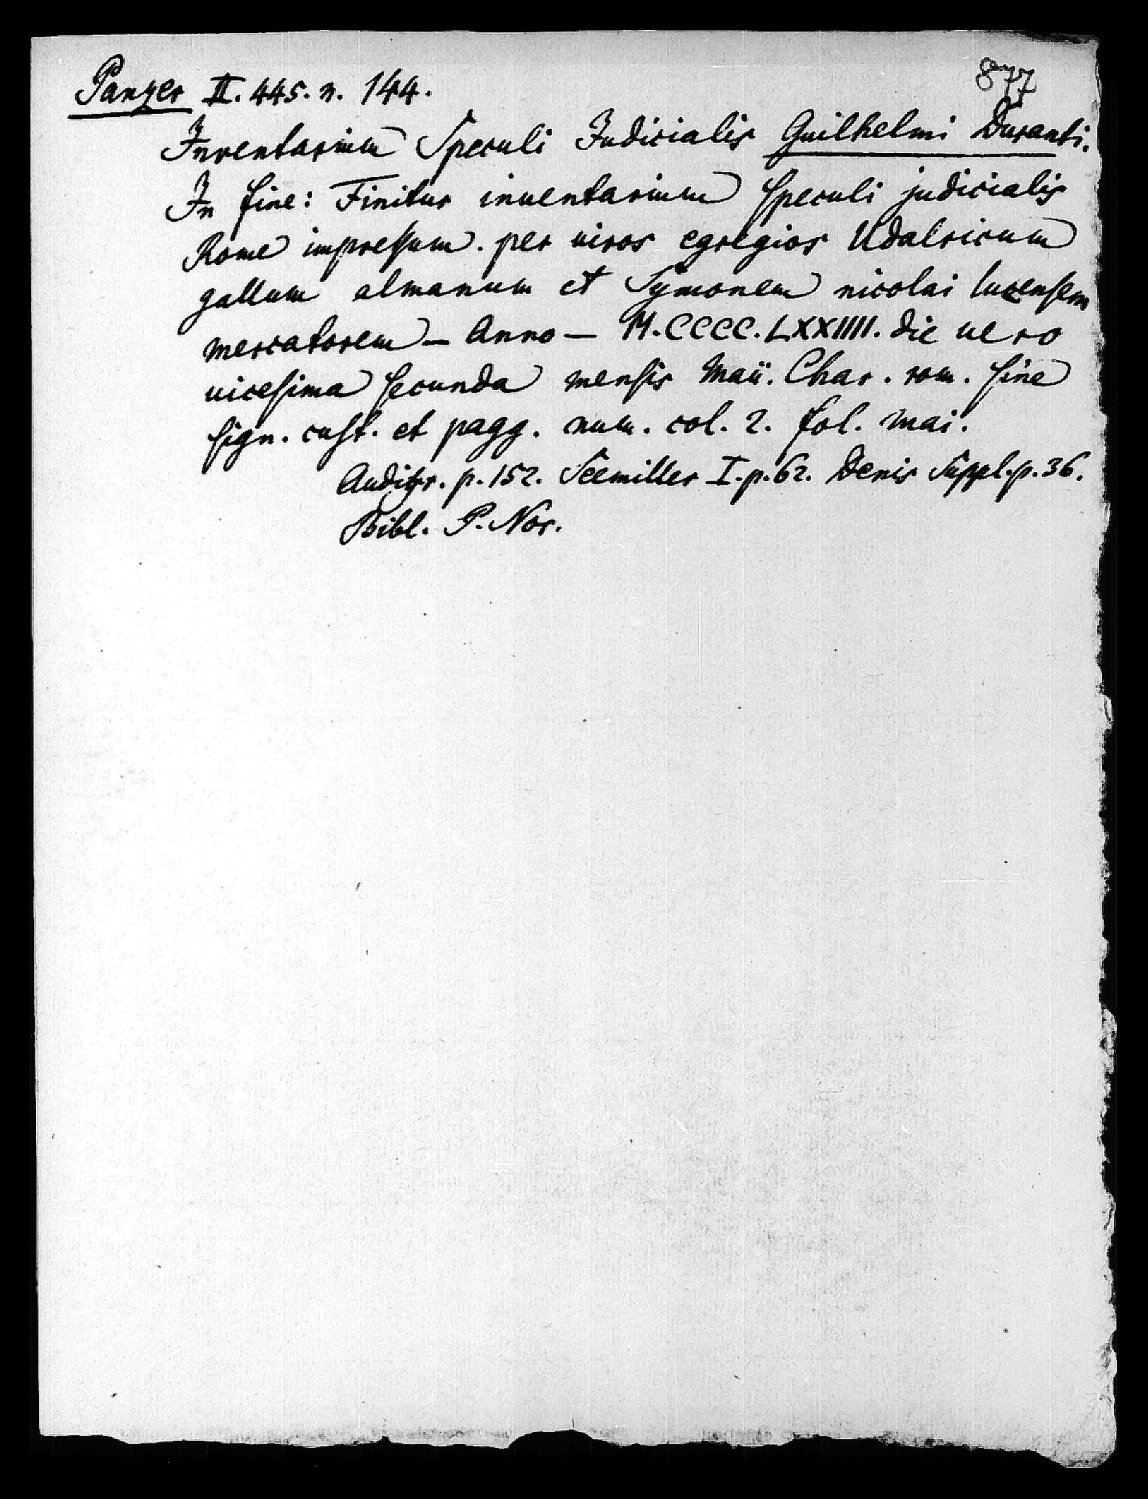 877
Panzer II. 445. n. 144.
Inventarium Speculi Judicialis Guilhelmi Duranti.
In fine: Finitur inuentarium speculi judicialis
Rome impressum. per uiros egregios Udalricum
gallum almanum et Symonem nicolai lucensem
mercatorem — Anno — M.CCCC.LXXIIII. die uero
uicesima secunda mensis Maii. Char. rom. sine
sign. cust. et pagg. num. col. 2. fol. mai.
Audifr. p. 152. Seemiller I. p. 62. Denis Suppl. p. 36.
Bibl. P. Nor.